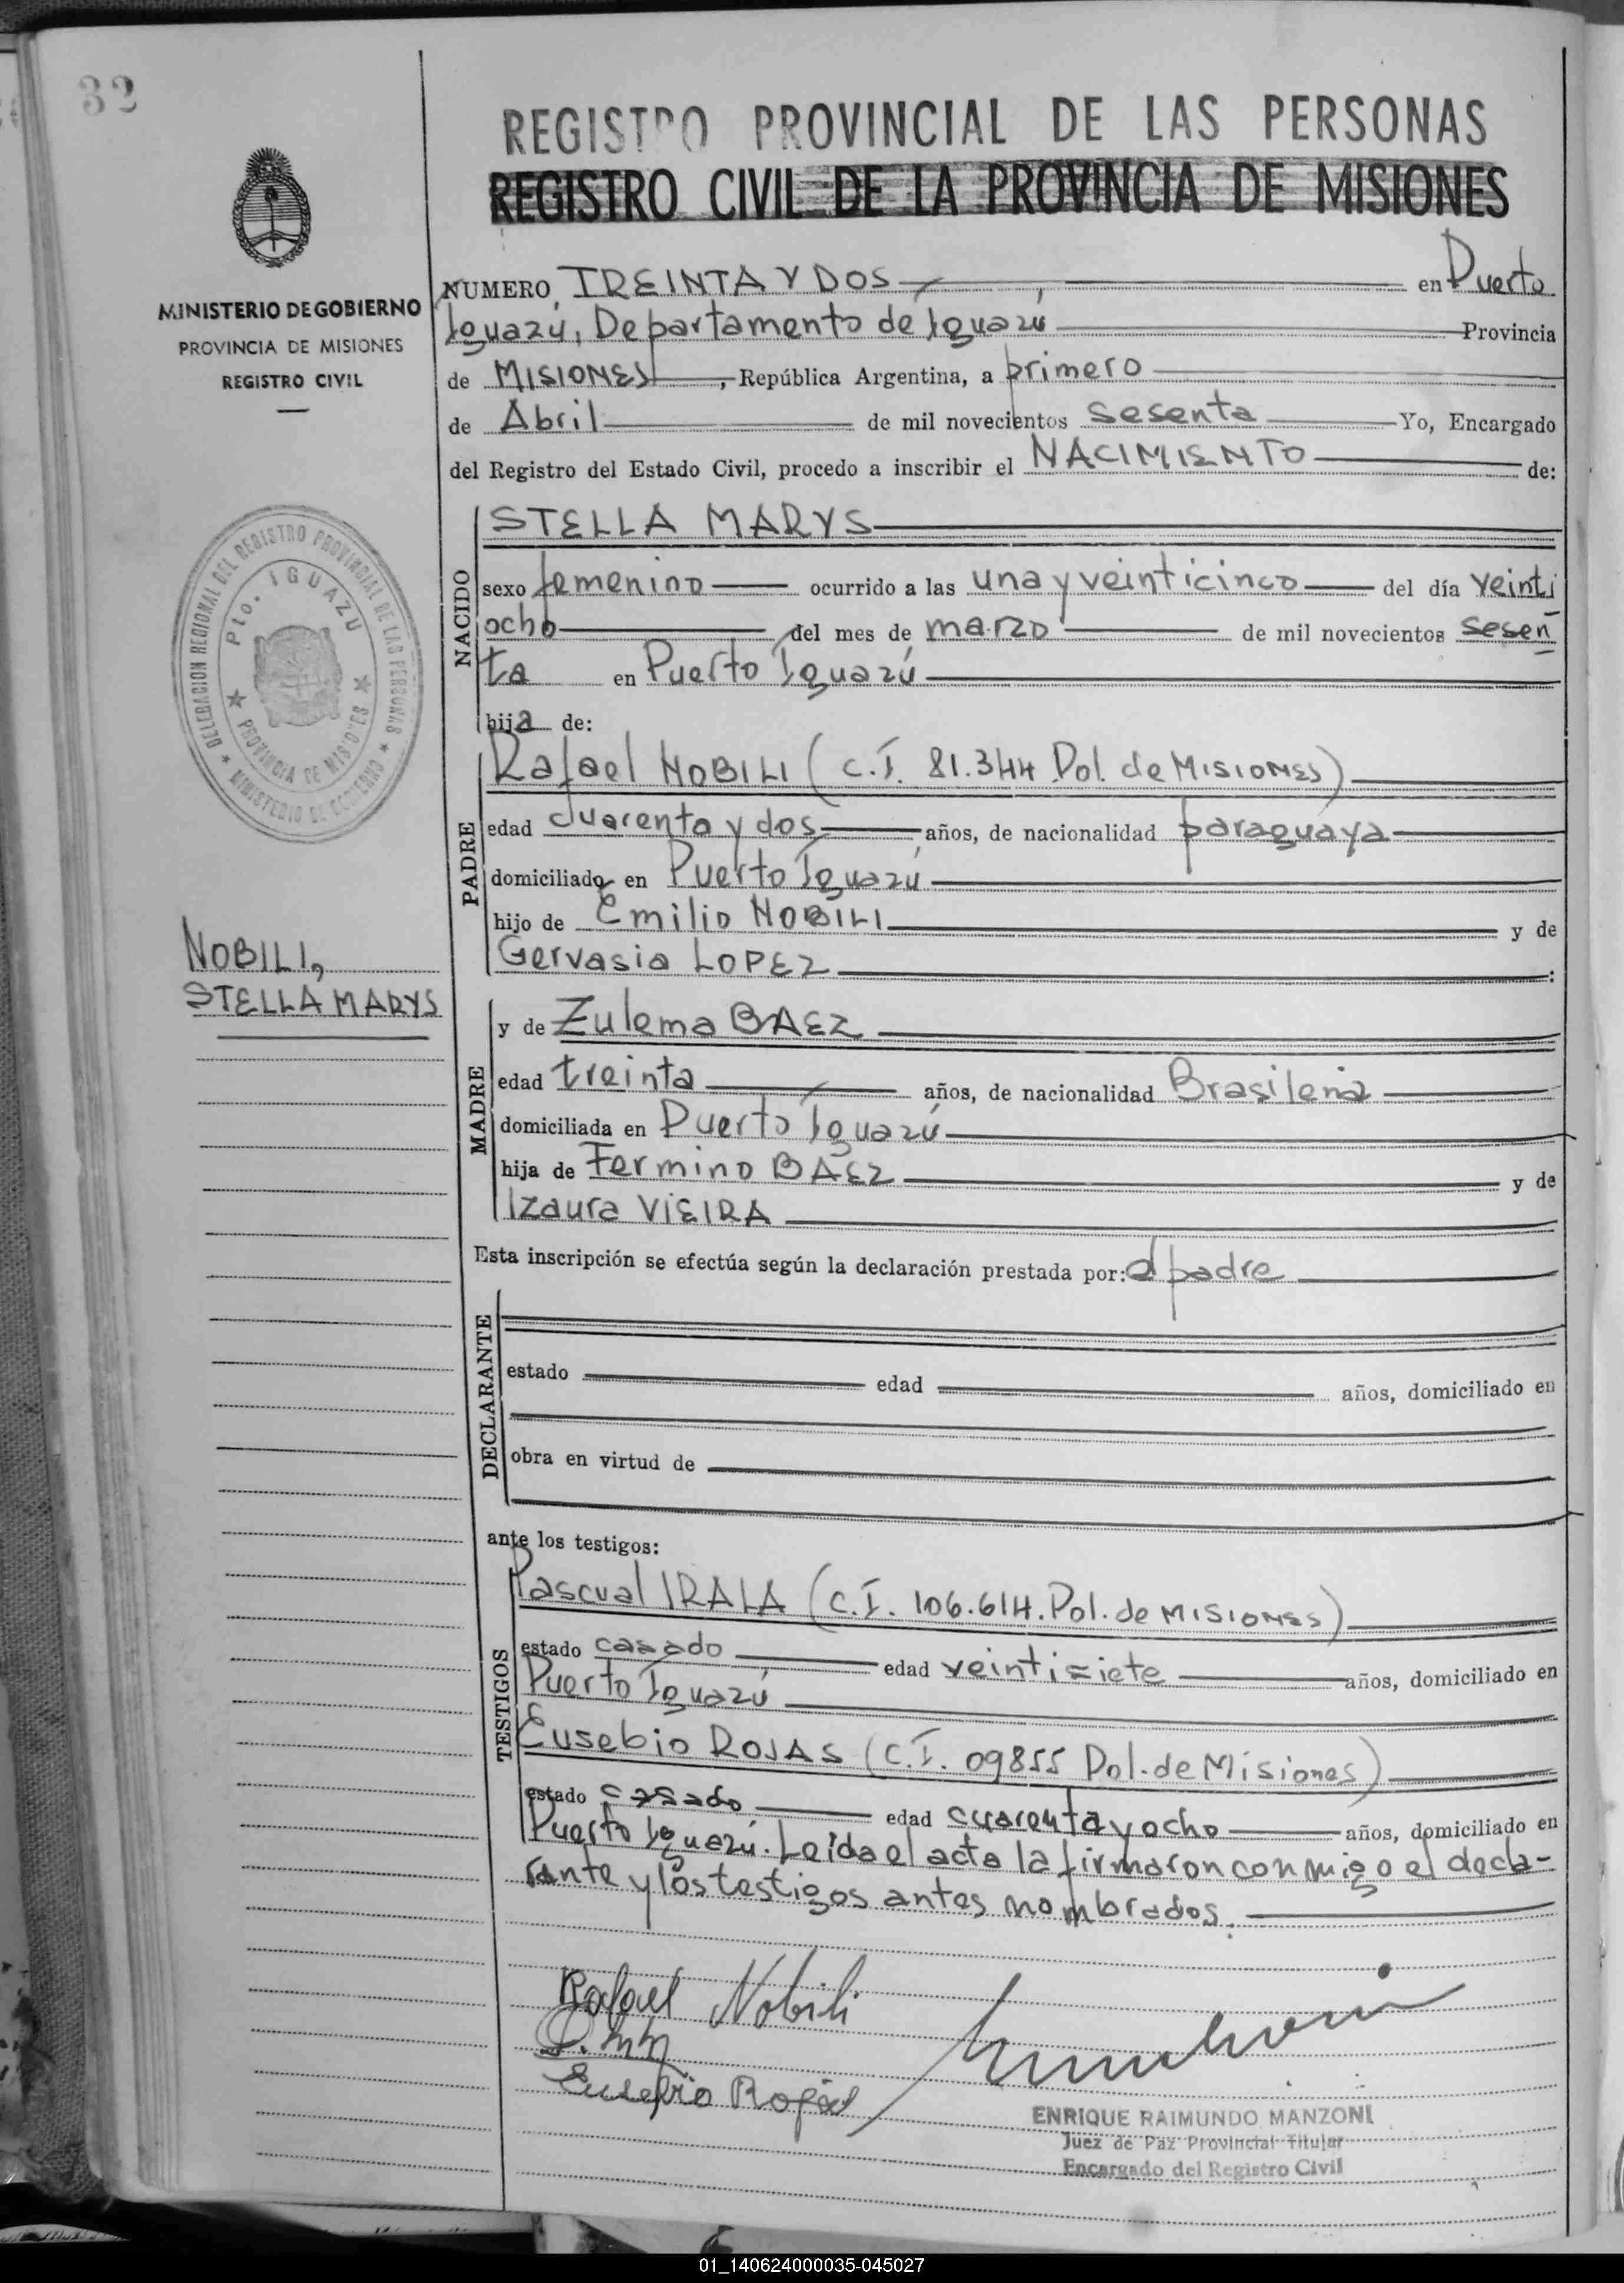 32
REGISTRO PROVINCIAL DE LAS PERSONAS
REGISTRO CIVIL DE LA PROVINCIA DE MISIONES
MINISTERIO DE GOBIERNO
PROVINCIA DE MISIONES
REGISTRO CIVIL
NUMERO TREINTA Y DOS en Puerto
Iguazú, Departamento de Iguazú Provincia
de MISIONES, República Argentina, a primero
de Abril de mil novecientos sesenta Yo, Encargado
del Registro del Estado Civil, procedo a inscribir el NACIMIENTO de:
DELEGACION REGIONAL DEL REGISTRO PROVINCIAL DE LAS PERSONAS
MINISTERIO DE GOBIERNO
Pto. IGUAZU
PROVINCIA DE MISIONES
NACIDO
STELLA MARYS
sexo femenino ocurrido a las una y veinticinco del día veinti
ocho del mes de marzo de mil novecientos sesen
ta en Puerto Iguazú
hija de:
PADRE
Rafael NOBILI (C.I. 81.344 Pol. de MISIONES)
edad cuarenta y dos años, de nacionalidad paraguaya
domiciliado en Puerto Iguazú
hijo de Emilio NOBILI y de
Gervasia LOPEZ:
NOBILI,
STELLA MARYS
MADRE
y de Zulema BAEZ
edad treinta años, de nacionalidad Brasileña
domiciliada en Puerto Iguazú
hija de Fermino BAEZ y de
Izaura VIEIRA
Esta inscripción se efectúa según la declaración prestada por: el padre
DECLARANTE
estado edad años, domiciliado en
obra en virtud de
ante los testigos:
TESTIGOS
Pascual IRALA (C.I. 106.614. Pol. de MISIONES)
estado casado edad veintisiete años, domiciliado en
Puerto Iguazú
Eusebio ROJAS (C.I. 09855 Pol. de Misiones)
estado casado edad cuarenta y ocho años, domiciliado en
Puerto Iguazú. Leida el acta la firmaron conmigo el decla-
rante y los testigos antes nombrados.
Rafael Nobili
Eusebio Rojas
ENRIQUE RAIMUNDO MANZONI
Juez de Paz Provincial Titular
Encargado del Registro Civil
01_140624000035-045027